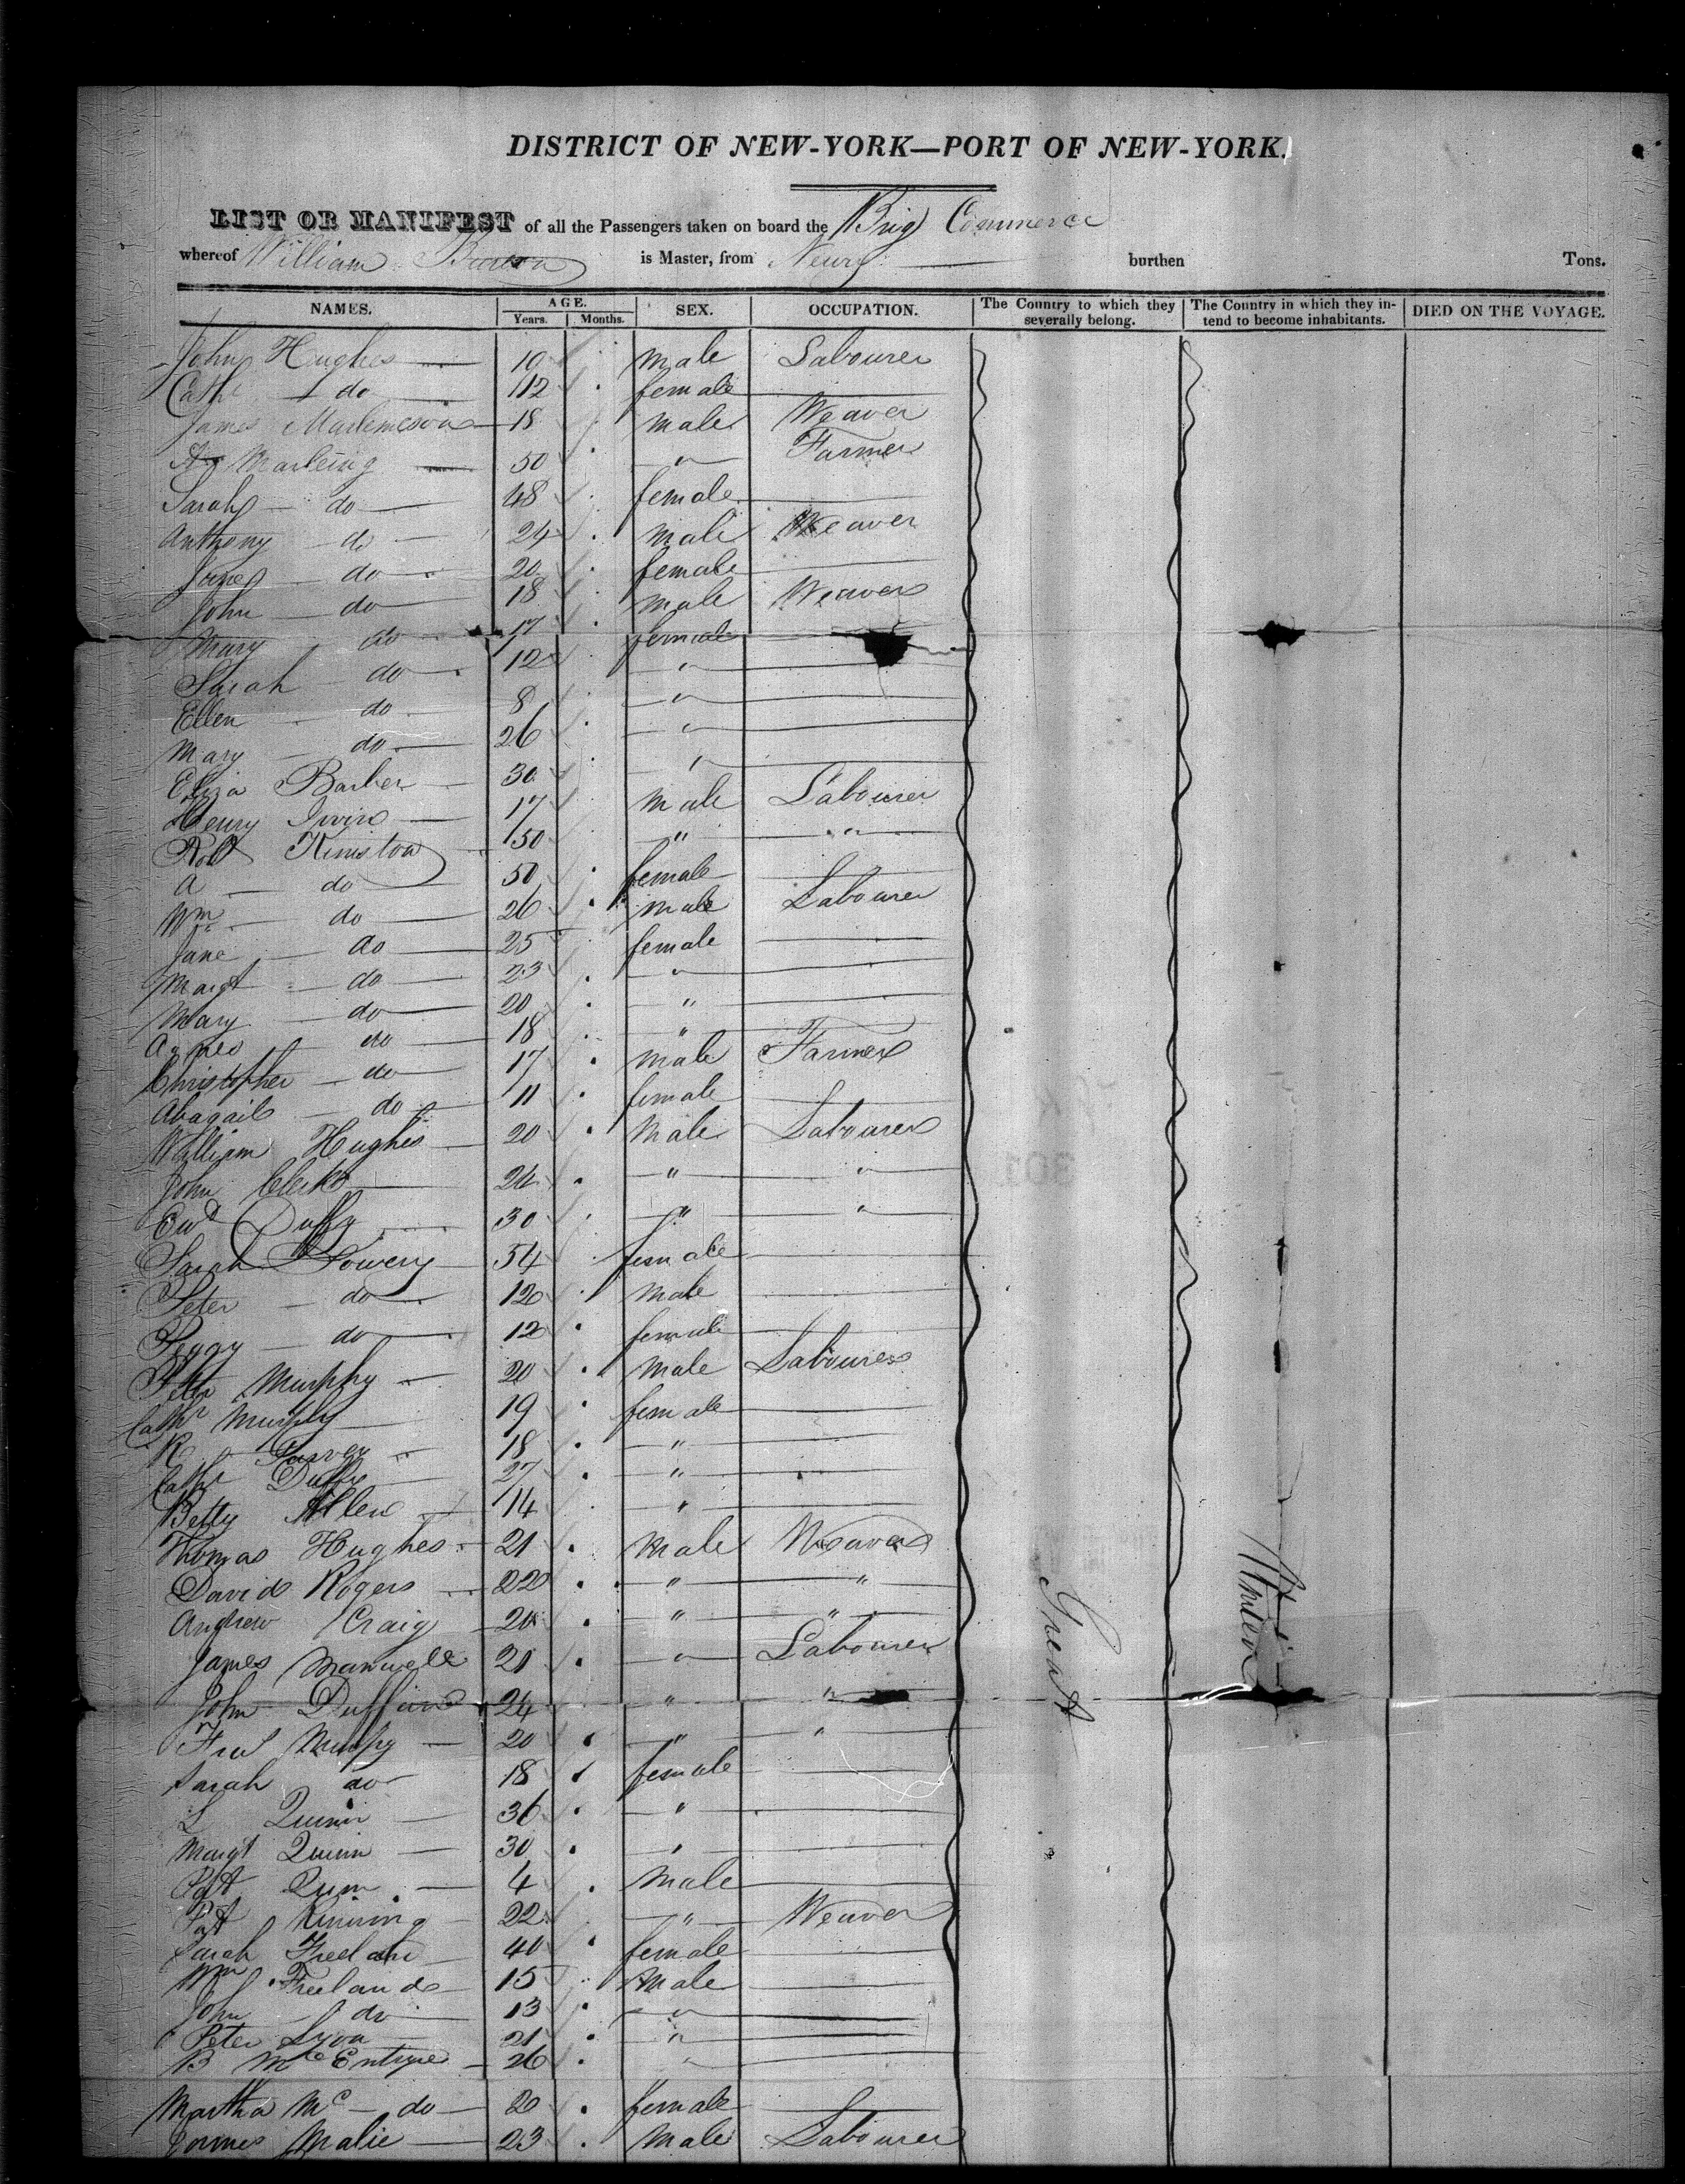 DISTRICT OF NEW-YORK—PORT OF NEW-YORK.
LIST OR MANIFEST of all the Passengers taken on board the Brig Commerce
whereof William is Master, from Newry burthen Tons.
NAMES. AGE. Years. Months. SEX. OCCUPATION. The Country to which they severally belong. The Country in which they intend to become inhabitants. DIED ON THE VOYAGE.
John Hughes 19 male Labourer
Cath do 12 female
James 18 male Weaver
50 " Farmer
Sarah do 48 female
Anthony do 24 male Weaver
Jane do 20 female
John do 18 male Weaver
Mary do 17 female
Sarah do 12 "
Ellen do 8 "
Mary do 26 "
Eliza Barber 30 "
Henry Irvin 17 male Labourer
Robt Kinston 50 " "
A do 50 female
Wm do 26 male Labourer
Jane do 25 female
Margt do 23 "
Mary do 20 "
Agnes do 18 "
Christopher do 17 male Farmer
Abagail do 11 female
William Hughes 20 male Labourer
John 24 " "
Ewd Duffy 30 " "
Sarah Lowery 54 female
Peter do 12 male
Peggy do 12 female
Peter Murphy 20 male Labourer
Cathr Murphy 19 female
R Garvey 18 "
Cathr Duffy 27 "
Betty Allen 14 "
Thomas Hughes 21 male Weaver
David Rogers 22 " "
Andrew Craig 20 " "
James Maxwell 21 " Labourer
John 24 " "
Murphy 20 " "
Sarah do 18 female
L Quinn 36 "
Margt Quinn 30 "
Pat Quin 4 male
Pat 22 " Weaver
Sarah Freeland 40 female
Wm Freeland 15 male
John do 13 "
Peter Lyon 21 "
B McEntyre 26 "
Martha Mc do 20 female
James Malie 23 male Labourer
Great
United